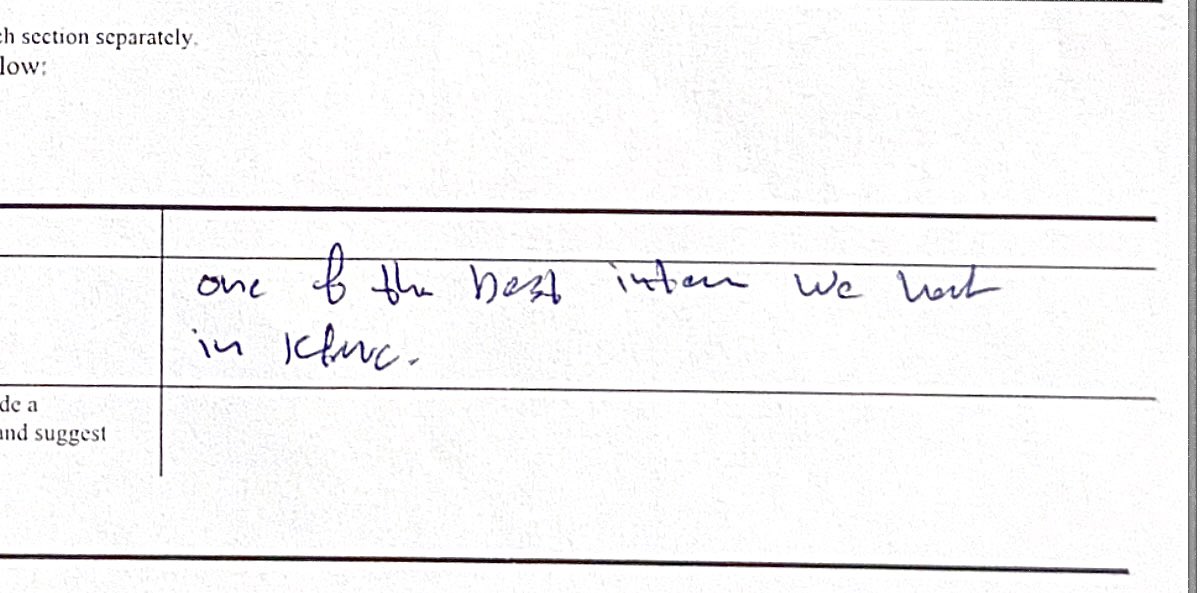 ch section separately.
low:
one of the best intern we had
in
de a
and suggest